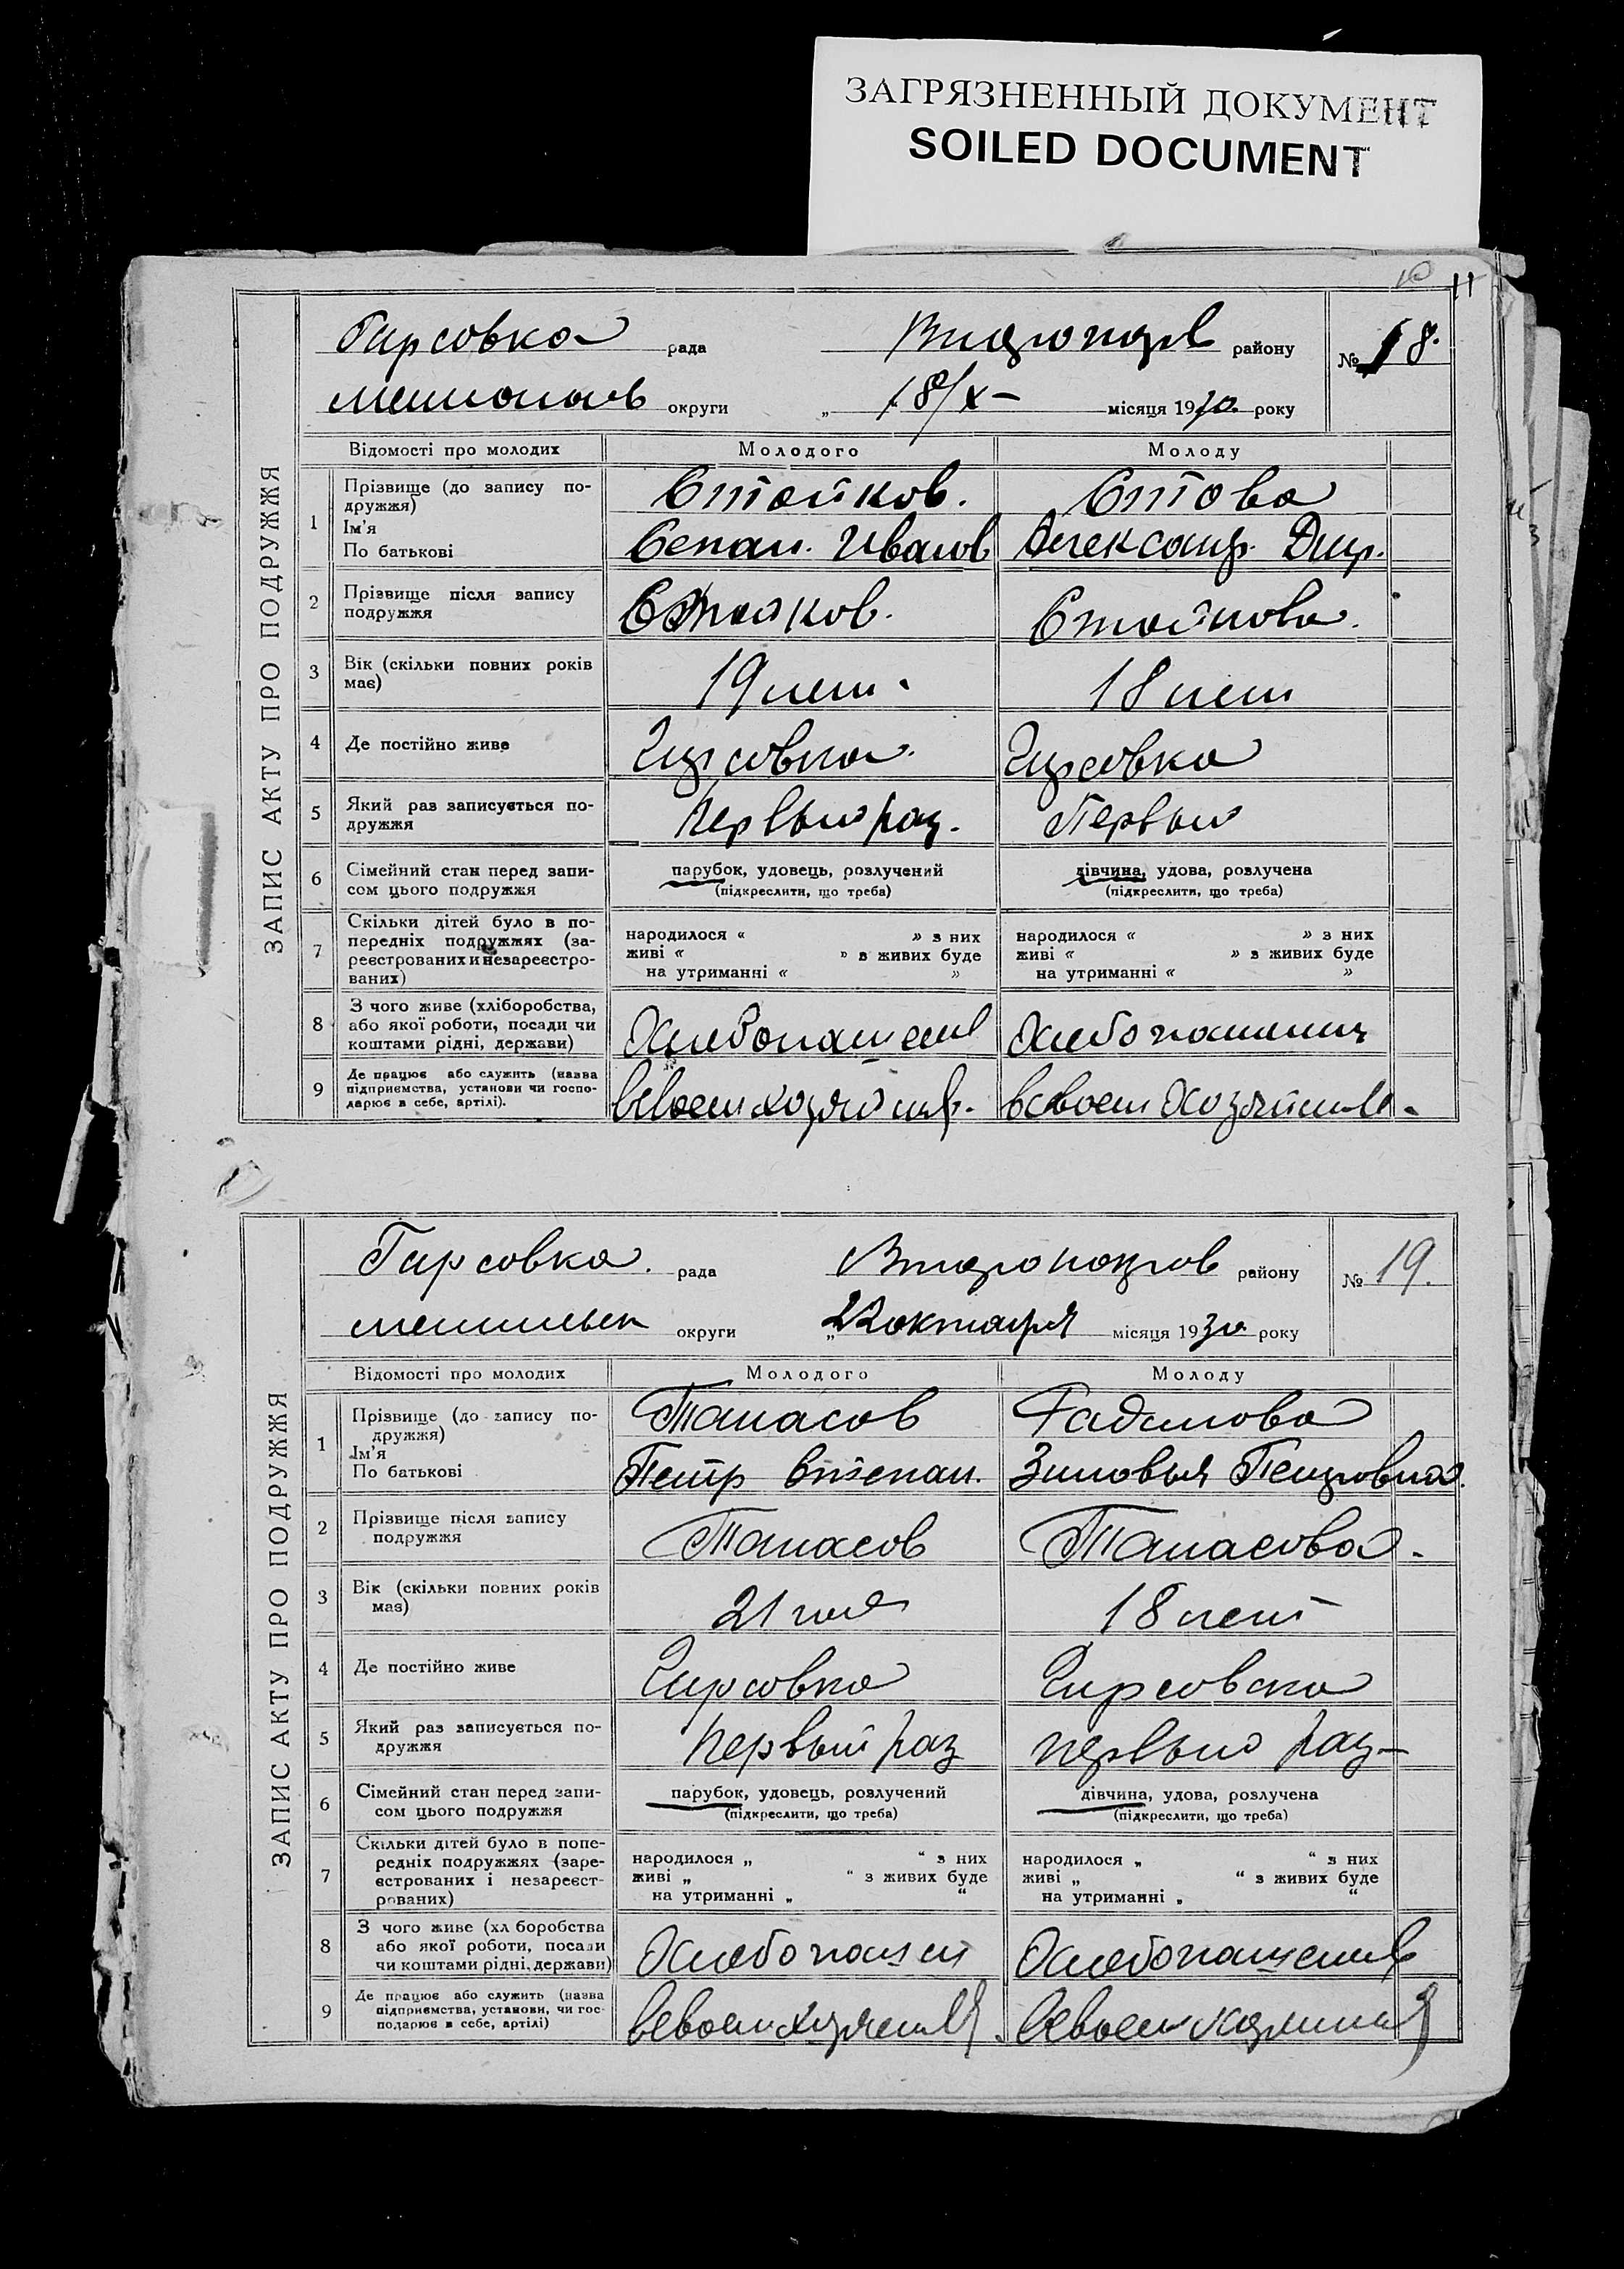 ЗАГРЯЗНЕННЫЙ ДОКУМЕНТ
SOILED DOCUMENT
10 11
ЗАПИС АКТУ ПРО ПОДРУЖЖЯ
Гирсовка рада району № 18.
округи „ 18/X – місяця 1930 року
Відомості про молодих Молодого Молоду
1 Прізвище (до запису по-
дружжя)
Ім'я
По батькові
Стойков. Стова
Степан. Иванов Александр. Дмр.
2 Прізвище після запису
подружжя
Стойков. Стойкова.
3 Вік (скільки повних років
має)
19 лет. 18 лет
4 Де постійно живе Гирсовка. Гирсовка
5 Який раз записується по-
дружжя
Первый раз. Первый
6 Сімейний стан перед запи-
сом цього подружжя
парубок, удовець, розлучений дівчина, удова, розлучена
(підкреслити, що треба) (підкреслити, що треба)
7 Скільки дітей було в по-
передніх подружжях (за-
реєстрованих и незареєстро-
ваних)
народилося « » з них народилося « » з них
живі « » в живих буде живі « » в живих буде
на утриманні « » на утриманні « »
8 З чого живе (хліборобства,
або якої роботи, посади чи
коштами рідні, держави)
Хлебопашен Хлебопашен
9 Де працює або служить (назва
підприємства, установи чи госпо-
дарює в себе, артілі).
в своем хозяйств. в своем хозяйстве.
ЗАПИС АКТУ ПРО ПОДРУЖЖЯ
Гирсовка. рада району № 19.
округи „ 22 октября місяця 1930 року
Відомості про молодих Молодого Молоду
1 Прізвище (до запису по-
дружжя)
Ім'я
По батькові
Танасов Гаданова
Петр Степан. Зиновья Петровна.
2 Прізвище після запису
подружжя
Танасов Танасова.
3 Вік (скільки повних років
має)
21 год 18 лет
4 Де постійно живе Гирсовка Гирсовка
5 Який раз записується по-
дружжя
первый раз первый раз –
6 Сімейний стан перед запи-
сом цього подружжя
парубок, удовець, розлучений дівчина, удова, розлучена
(підкреслити, що треба) (підкреслити, що треба)
7 Скільки дітей було в попе-
редніх подружжях (заре-
єстрованих і незареєст-
рованих)
народилося „ “ з них народилося „ “ з них
живі „ “ з живих буде живі „ “ з живих буде
на утриманні „ “ на утриманні „ “
8 З чого живе (хл боробства
або якої роботи, посади
чи коштами рідні, держави)
Хлебопашен Хлебопашен
9 Де працює або служить (назва
підприємства, установи, чи гос-
подарює в себе, артілі)
в своем хозяйстве. в своем хозяйстве